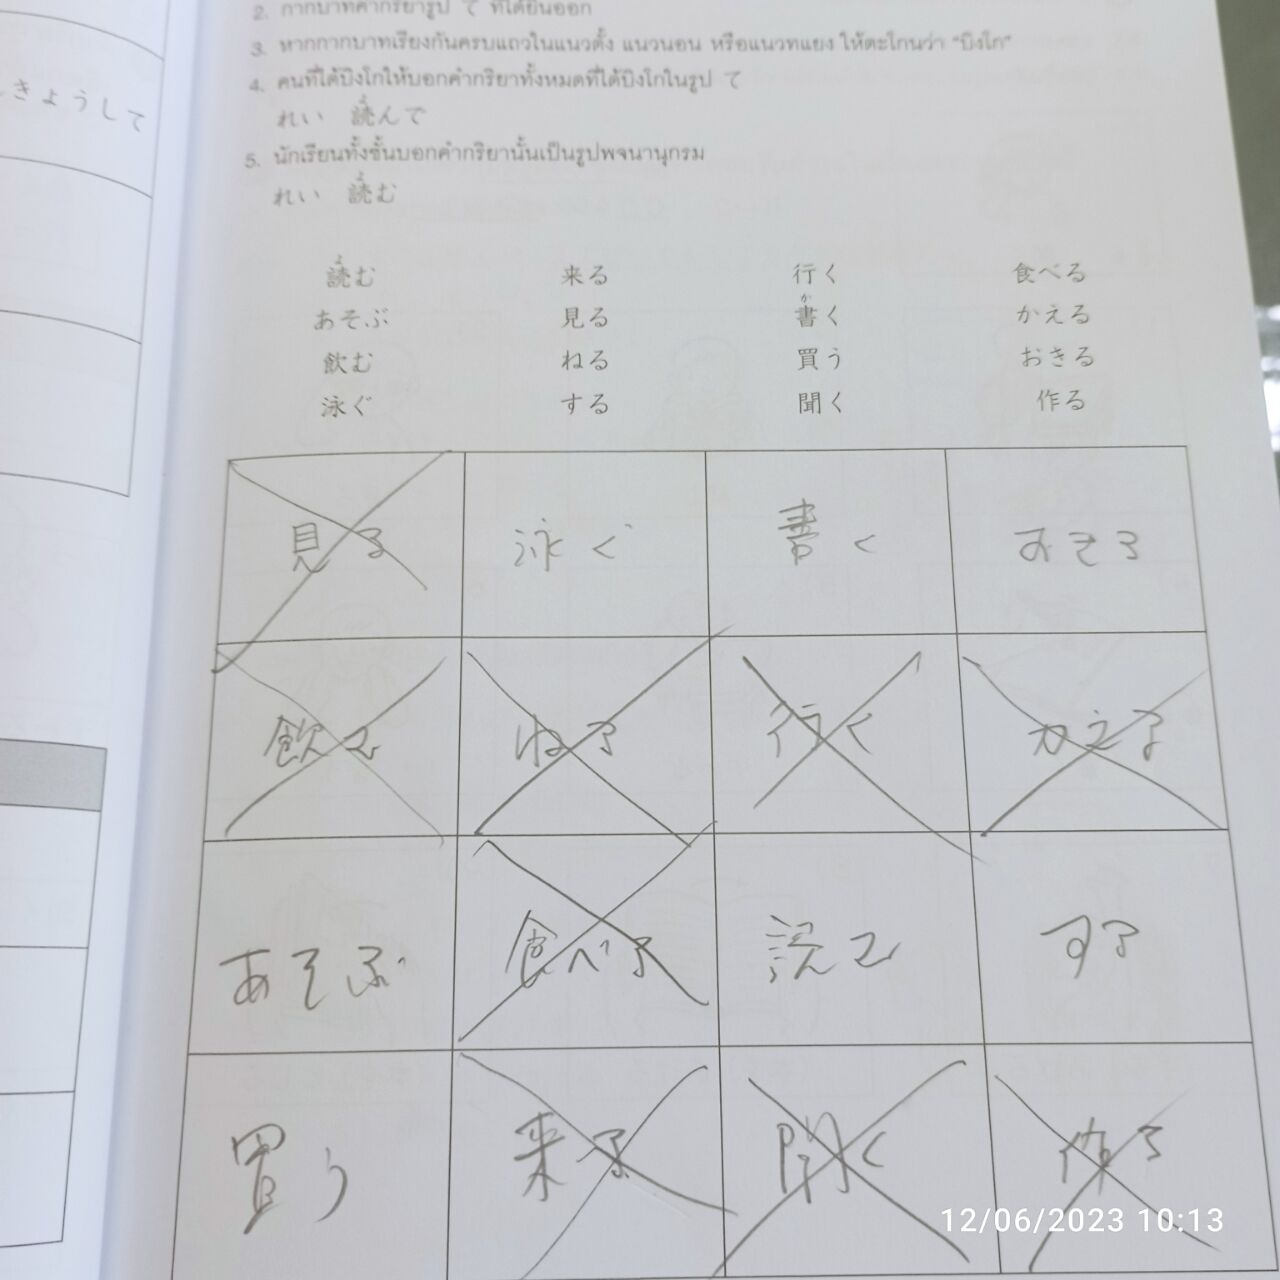 2. กากบาทคำกริยารูป て ที่ได้ยินออก
3. หากกากบาทเรียงกันครบแถวในแนวตั้ง แนวนอน หรือแนวทแยง ให้ตะโกนว่า "บิงโก"
4. คนที่ได้บิงโกให้บอกคำกริยาทั้งหมดที่ได้บิงโกในรูป て
れい 読んで
5. นักเรียนทั้งชั้นบอกคำกริยานั้นเป็นรูปพจนานุกรม
れい 読む
きょうして
読む 来る 行く 食べる
あそぶ 見る 書く かえる
飲む ねる 買う おきる
泳ぐ する 聞く 作る
見る 泳ぐ 書く おきる
飲む ねる 行く かえる
あそぶ 食べる 読む する
買う 来る 聞く 作る
12/06/2023 10:13